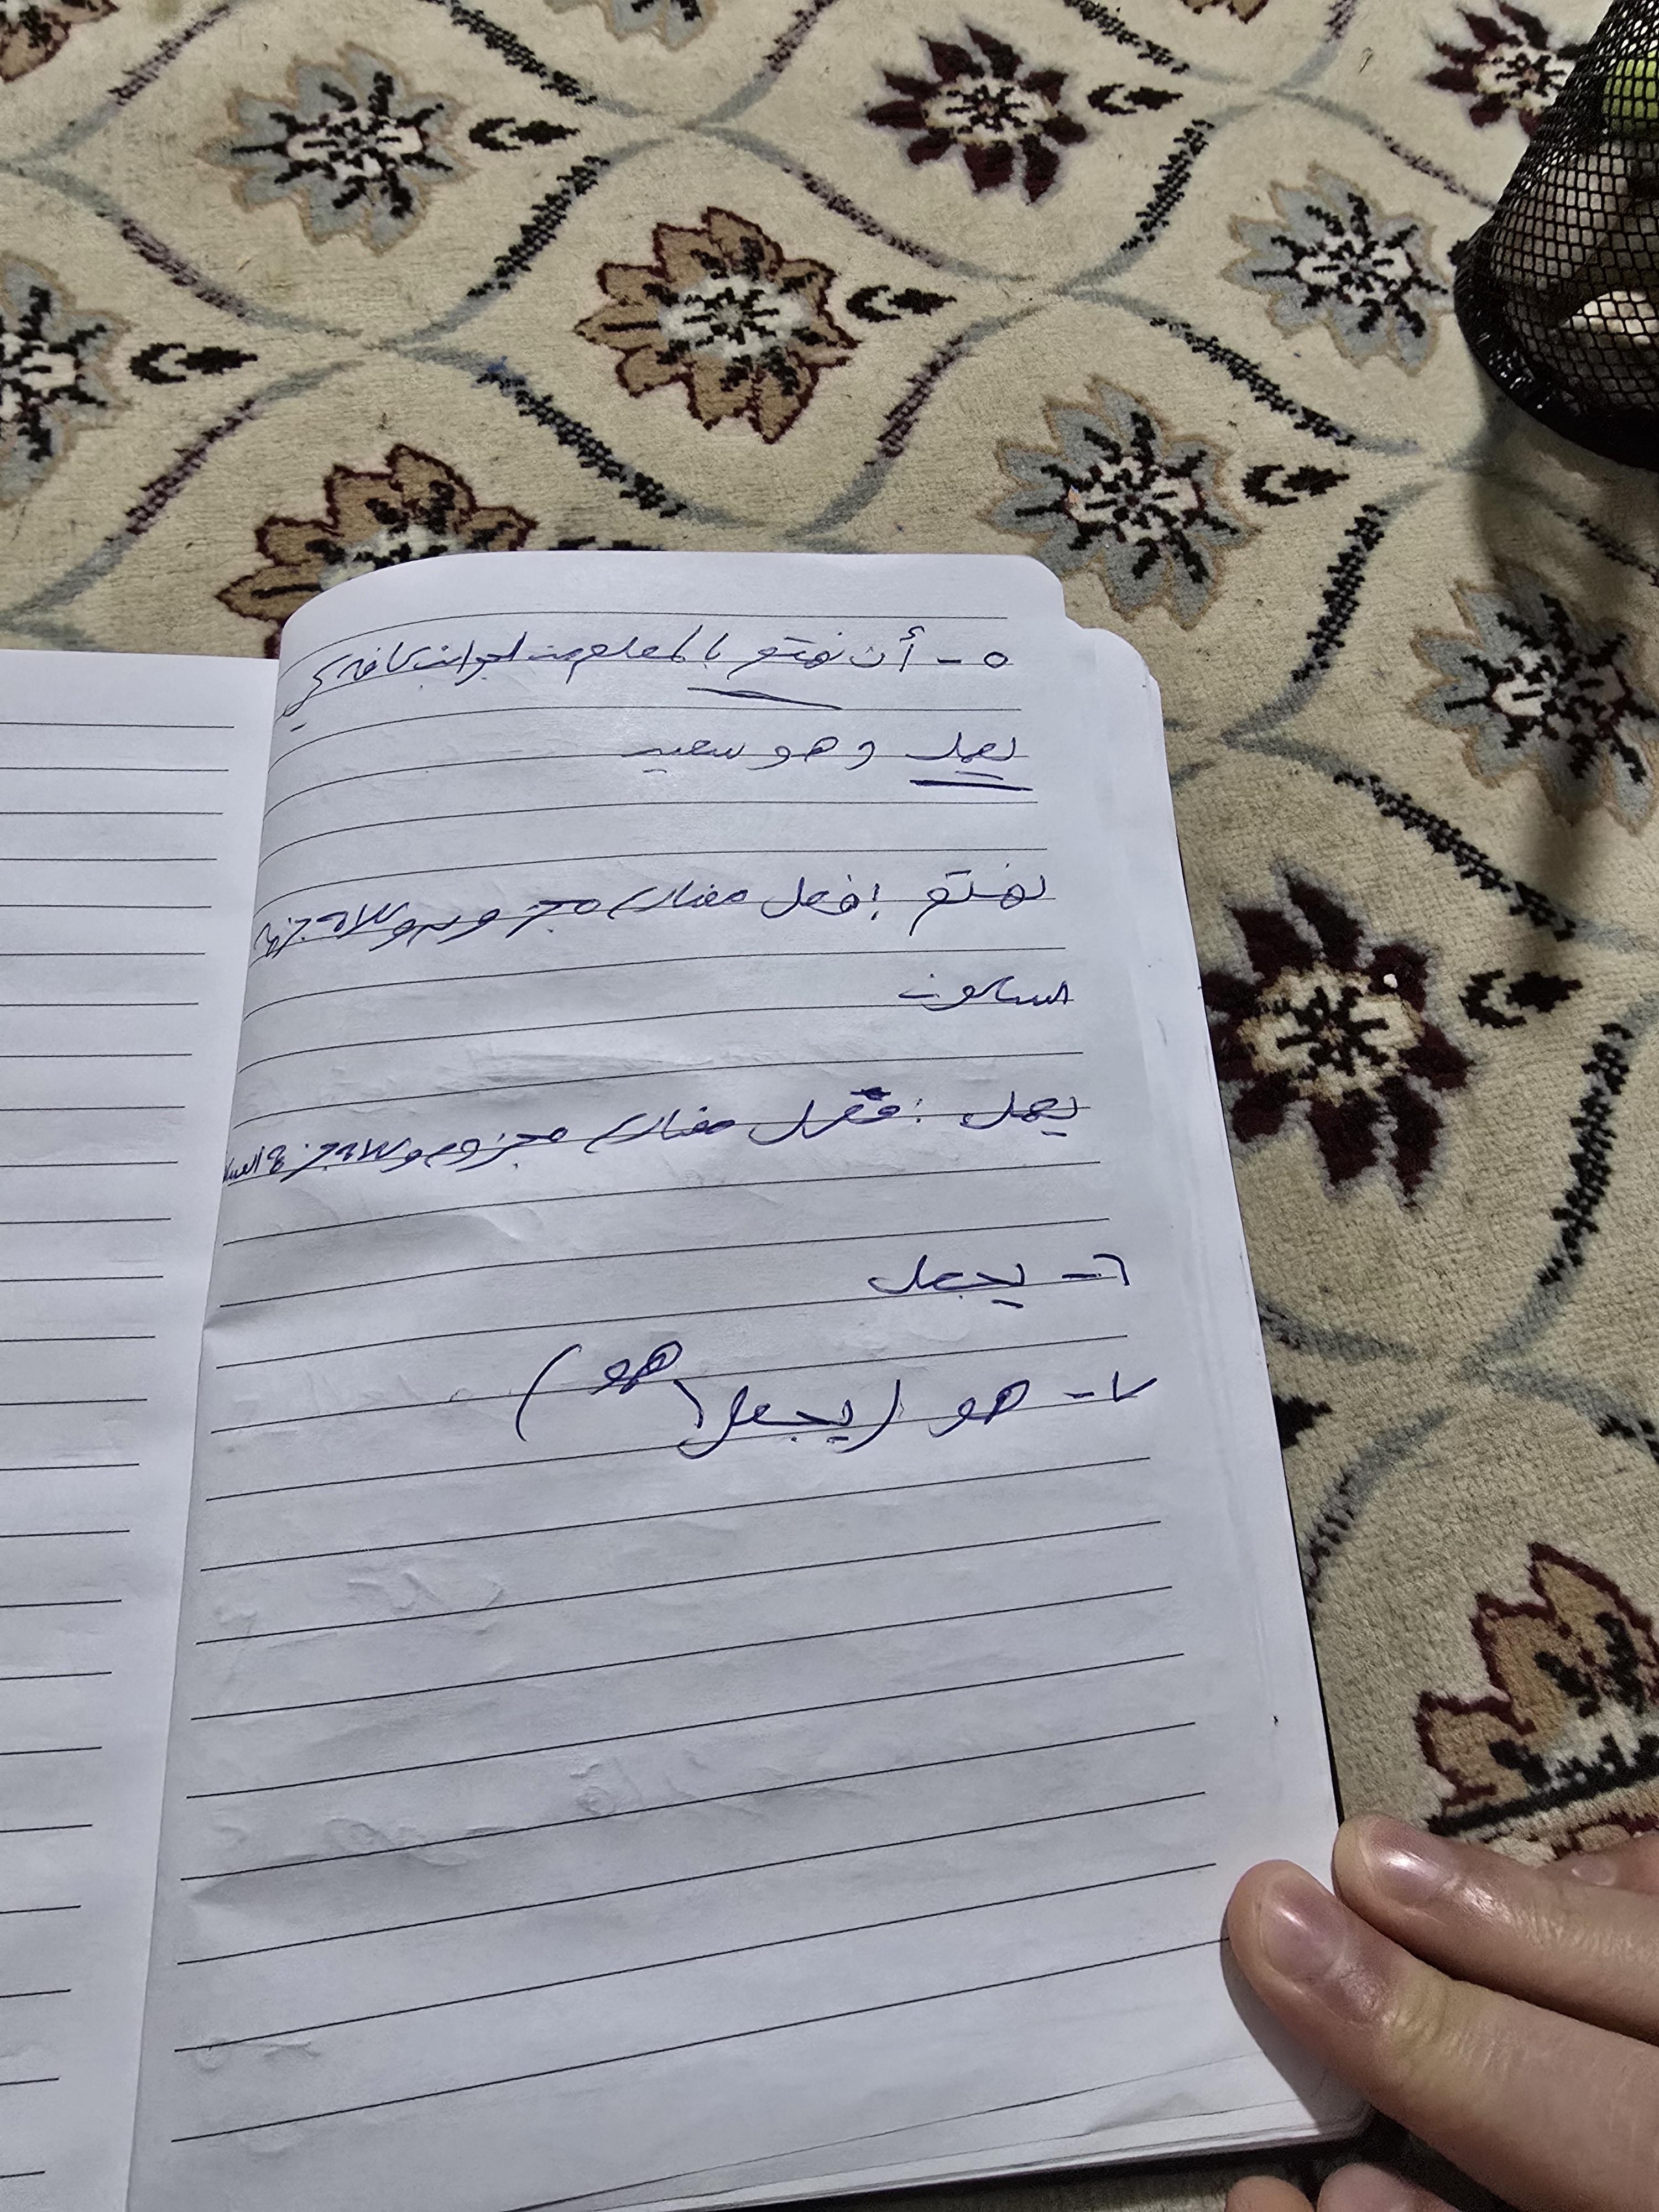 ٥ - أن نهتم بالمعلم من الجوانب كافة كي
يعمل وهو سعيد
نهتم : فعل مضارع مجزوم وعلامة جزمه
السكون
يعمل : فعل مضارع مجزوم وعلامة جزمه السكو
٦ - يجعل
٧ - هو ( يجعل \ هو )